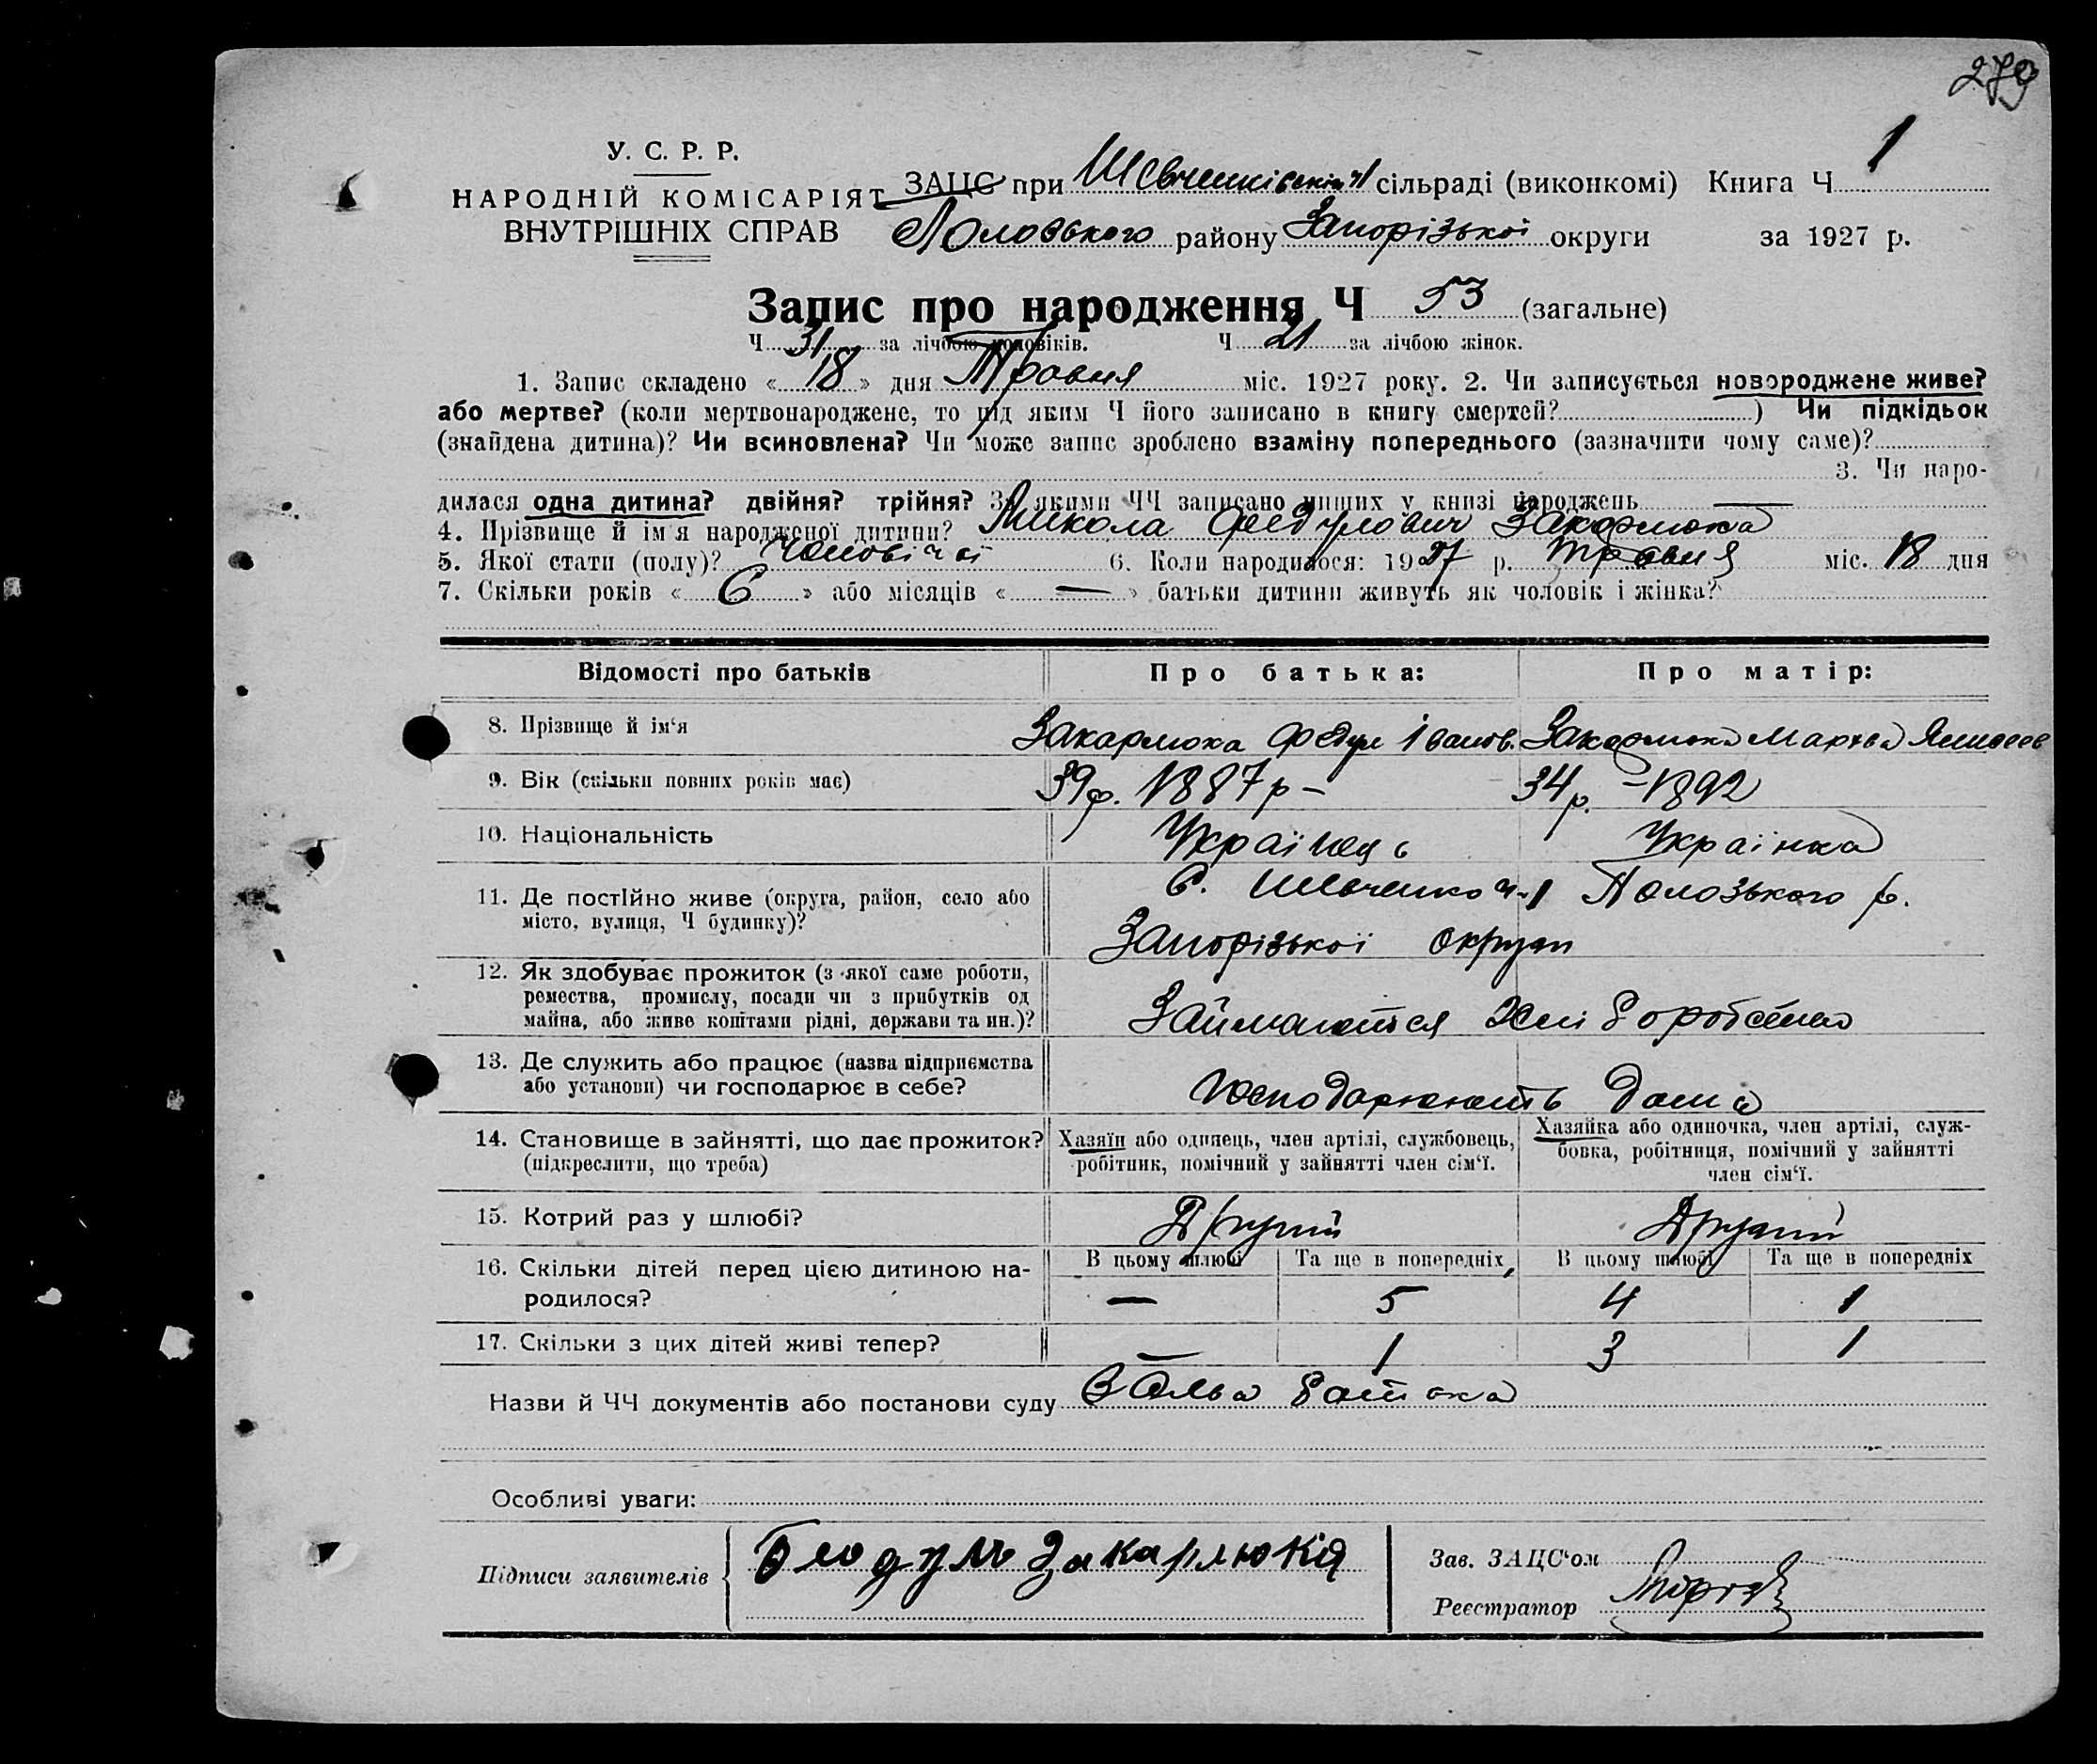 279
У. С. Р. Р.
НАРОДНІЙ КОМІСАРІЯТ
ВНУТРІШНІХ СПРАВ
ЗАЦС при Шевченківській ч1 сільраді (виконкомі) Книга Ч 1
Полозького району Запорізької округи за 1927 р.
Запис про народження Ч 53 (загальне)
Ч 31 за лічбою чоловіків. Ч 21 за лічбою жінок.
1. Запис складено « 18 » дня Травня міс. 1927 року. 2. Чи записується новороджене живе?
або мертве? (коли мертвонароджене, то під яким Ч його записано в книгу смертей? ) Чи підкідьок
(знайдена дитина)? Чи всиновлена? Чи може запис зроблено взаміну попереднього (зазначити чому саме)?
3. Чи наро-
дилася одна дитина? двійня? трійня? За якими ЧЧ записано инших у книзі народжень —
4. Прізвище й ім'я народженої дитини? Микола Федулович Закарлюка
5. Якої стати (полу)? 6. Коли народилося: 1927 р. травня міс. 18 дня
7. Скільки років « 6 » або місяців « — » батьки дитини живуть як чоловік і жінка?
Відомості про батьків Про батька: Про матір:
8. Прізвище й ім'я Закарлюка Федул Іванов. Закарлюка Мархва
9. Вік (скільки повних років має) 39 р. 1887 р – 34 р. – 1892
10. Національність Українець Українка
11. Де постійно живе (округа, район, село або С. Шевченко ч-1 Полозького р.
місто, вулиця, Ч будинку)? Запорізької округи
12. Як здобуває прожиток (з якої саме роботи,
ремества, промислу, посади чи з прибутків од
майна, або живе коштами рідні, держави та ин.)? Займаються хліборобством
13. Де служить або працює (назва підприємства
або установи) чи господарює в себе? Господарюють дома
14. Становище в зайнятті, що дає прожиток? Хазяїн або одинець, член артілі, службовець, Хазяйка або одиночка, член артілі, служ-
(підкреслити, що треба) робітник, помічний у зайнятті член сім'ї. бовка, робітниця, помічний у зайнятті
член сім'ї.
15. Котрий раз у шлюбі? Другий Другий
В цьому шлюбі Та ще в попередніх В цьому шлюбі Та ще в попередніх
16. Скільки дітей перед цією дитиною на-
родилося? — 5 4 1
17. Скільки з цих дітей живі тепер? — 1 3 1
Назви й ЧЧ документів або постанови суду
Особливі уваги:
Підписи заявителів Феодулъ Закарлюка
Зав. ЗАЦС'ом
Реєстратор